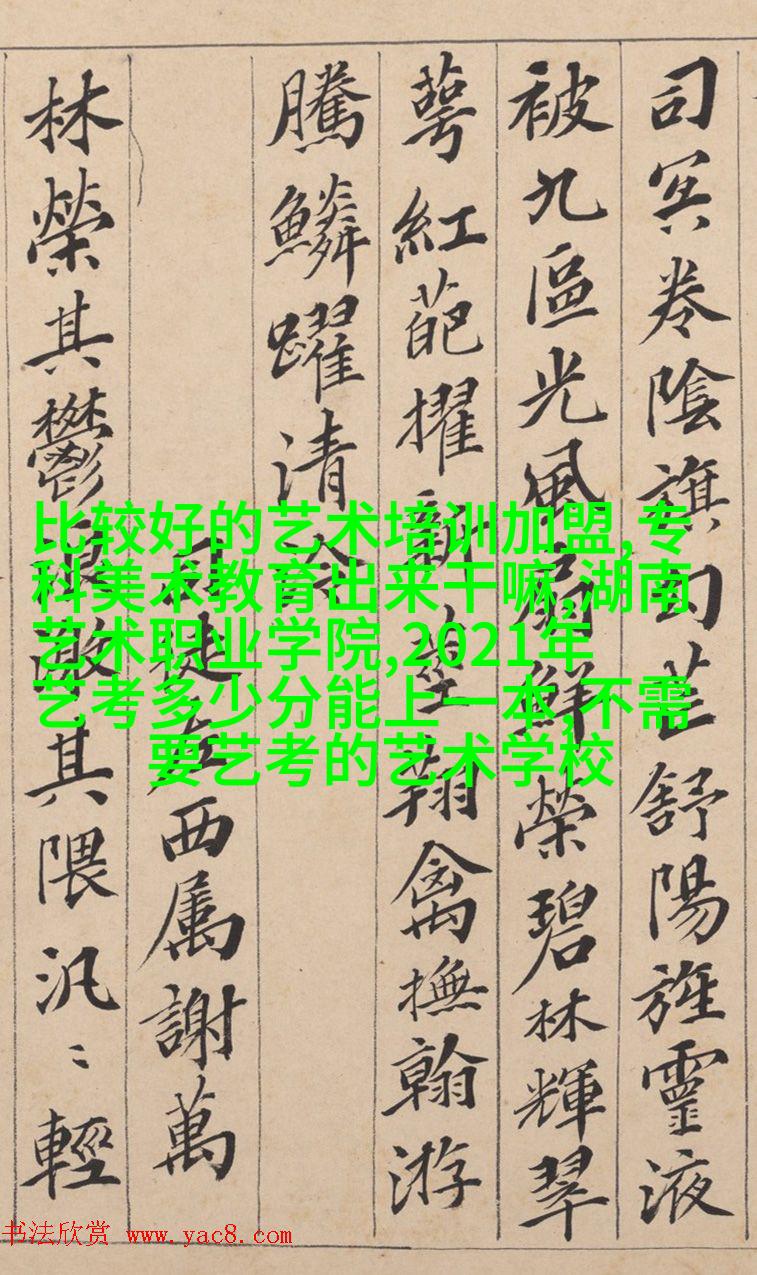 司冥卷陰旗句芒舒陽旌靈液
被九區光風扇鮮榮碧林輝翠
萼紅葩擢新莖翔禽撫翰游
騰鱗躍清泠
司徒左西属謝萬
林榮其鬱浪激其隈汎〻輕
比较好的艺术培训加盟,专
科美术教育出来干嘛,湖南
艺术职业学院,2021年
艺考多少分能上一本,不需
要艺考的艺术学校
书法欣赏 www.yac8.com